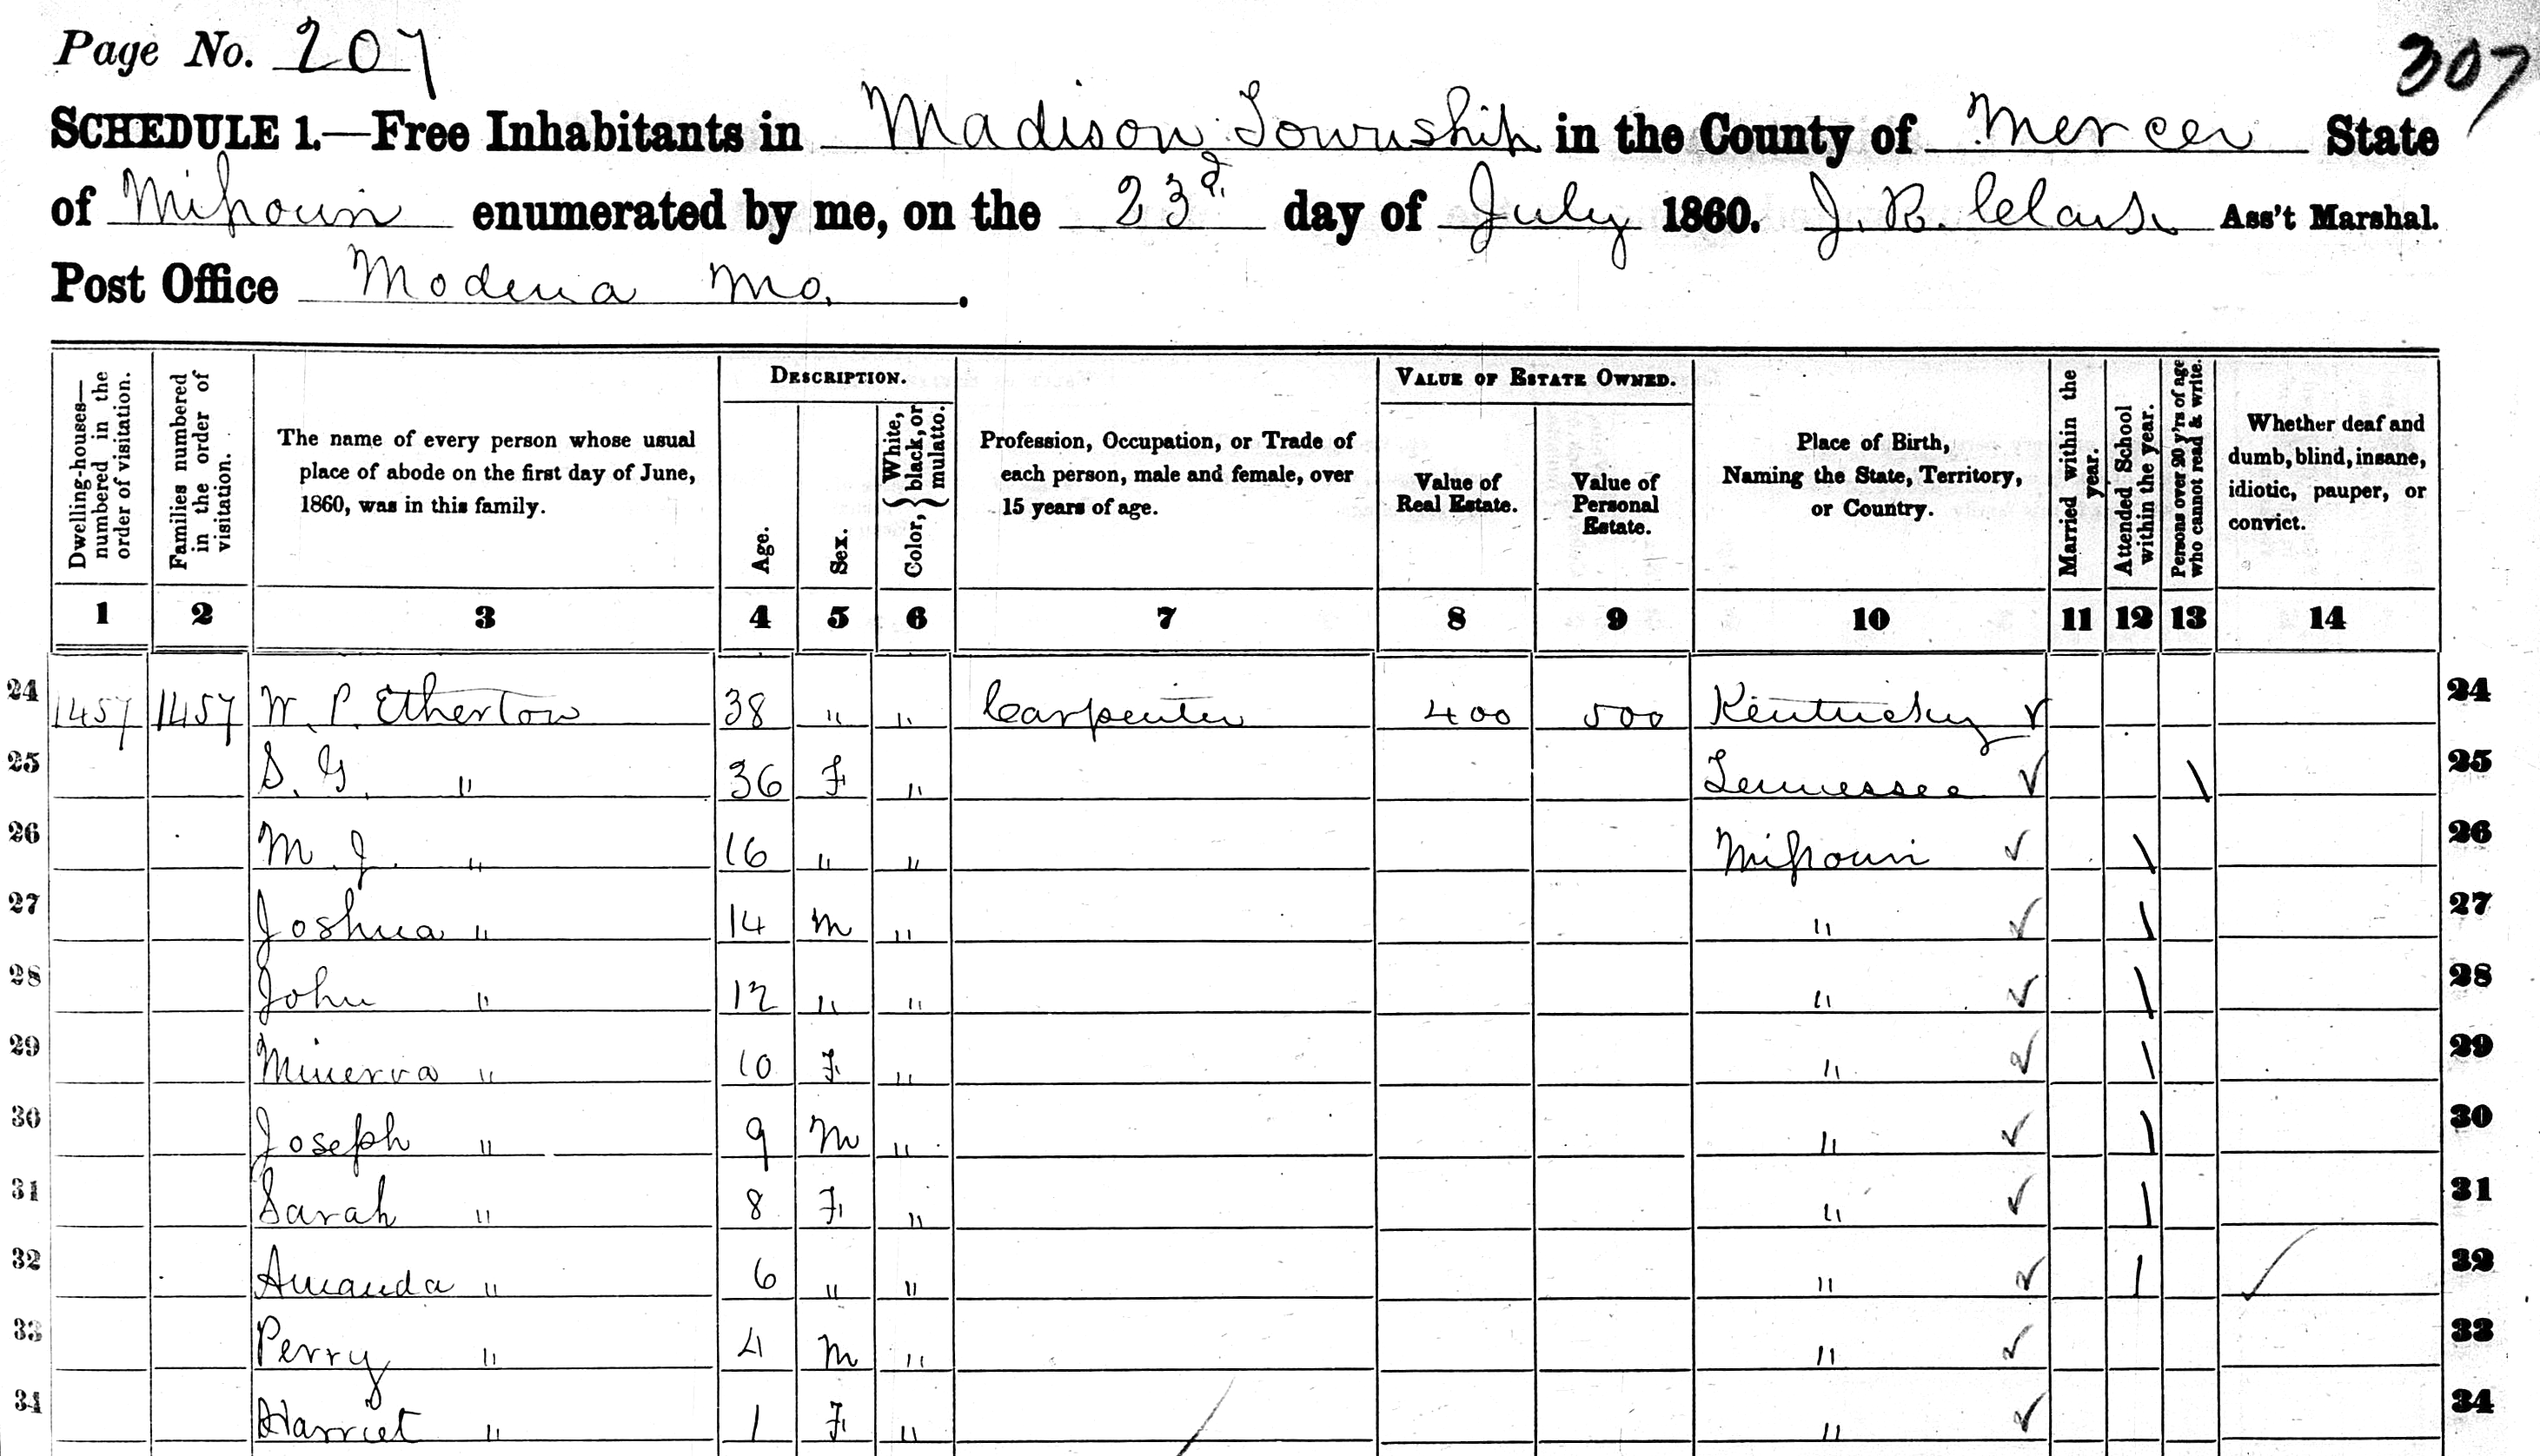 Page No. 207
307
SCHEDULE 1.—Free Inhabitants in Madison Township in the County of Mercer State
of Missouri enumerated by me, on the 23d day of July 1860. J. R. Clark Ass't Marshal.
Post Office Modena Mo.
Dwelling-houses—numbered in the order of visitation.
Families numbered in the order of visitation.
The name of every person whose usual
place of abode on the first day of June,
1860, was in this family.
DESCRIPTION.
Age.
Sex.
Color, { White, black, or mulatto.
Profession, Occupation, or Trade of
each person, male and female, over
15 years of age.
VALUE OF ESTATE OWNED.
Value of
Real Estate.
Value of
Personal
Estate.
Place of Birth,
Naming the State, Territory,
or Country.
Married within the year.
Attended School within the year.
Persons over 20 y'rs of age who cannot read & write.
Whether deaf and
dumb, blind, insane,
idiotic, pauper, or
convict.
1 2 3 4 5 6 7 8 9 10 11 12 13 14
24 1457 1457 W. P. Etherton 38 " " Carpenter 400 500 Kentucky ✓ 24
25 S. G. " 36 F " Tennessee ✓ \ 25
26 M. J. " 16 " " Missouri ✓ \ 26
27 Joshua " 14 M " " ✓ \ 27
28 John " 12 " " " ✓ \ 28
29 Minerva " 10 F " " ✓ \ 29
30 Joseph " 9 M " " ✓ \ 30
31 Sarah " 8 F " " ✓ \ 31
32 Amanda " 6 " " " ✓ | ✓ 32
33 Perry " 4 M " " ✓ 33
34 Harriet " 1 F " / " ✓ 34